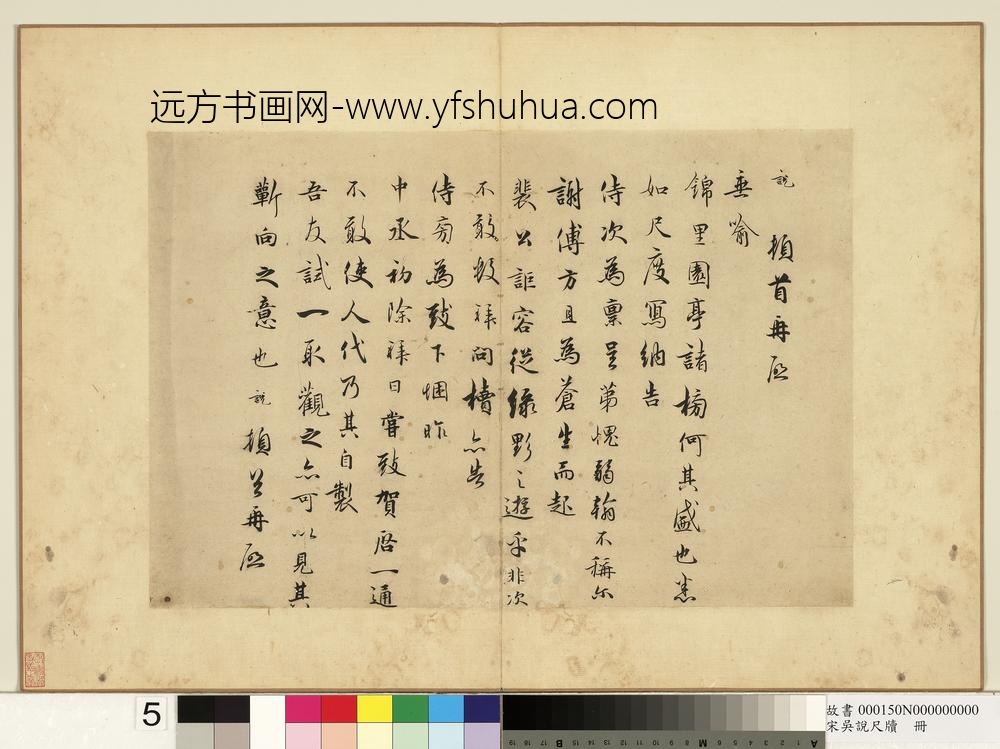 远方书画网-www.yfshuhua.com
說 頓首再啟
垂喻
錦里園亭諸榜何其盛也悉
如尺度寫納告
侍次為稟呈第愧弱翰不稱尓
謝傅方且為蒼生而起
裴公詎容從綠野之遊乎非次
不敢輙拜問櫝亦告
侍旁為致下悃昨
中丞初除拜日嘗致賀啓一通
不敢使人代乃其自製
吾友試一取觀之亦可以見其
蘄向之意也說頓首再啟
5
故書 000150N000000000
宋吳說尺牘 冊